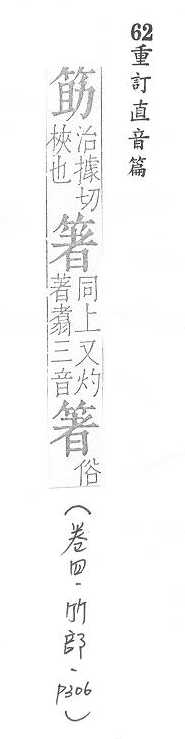 62重訂直音篇
筯
治據切
梜也
箸
同上又灼
著翥三音
箸
俗
(卷四·竹部·P306)